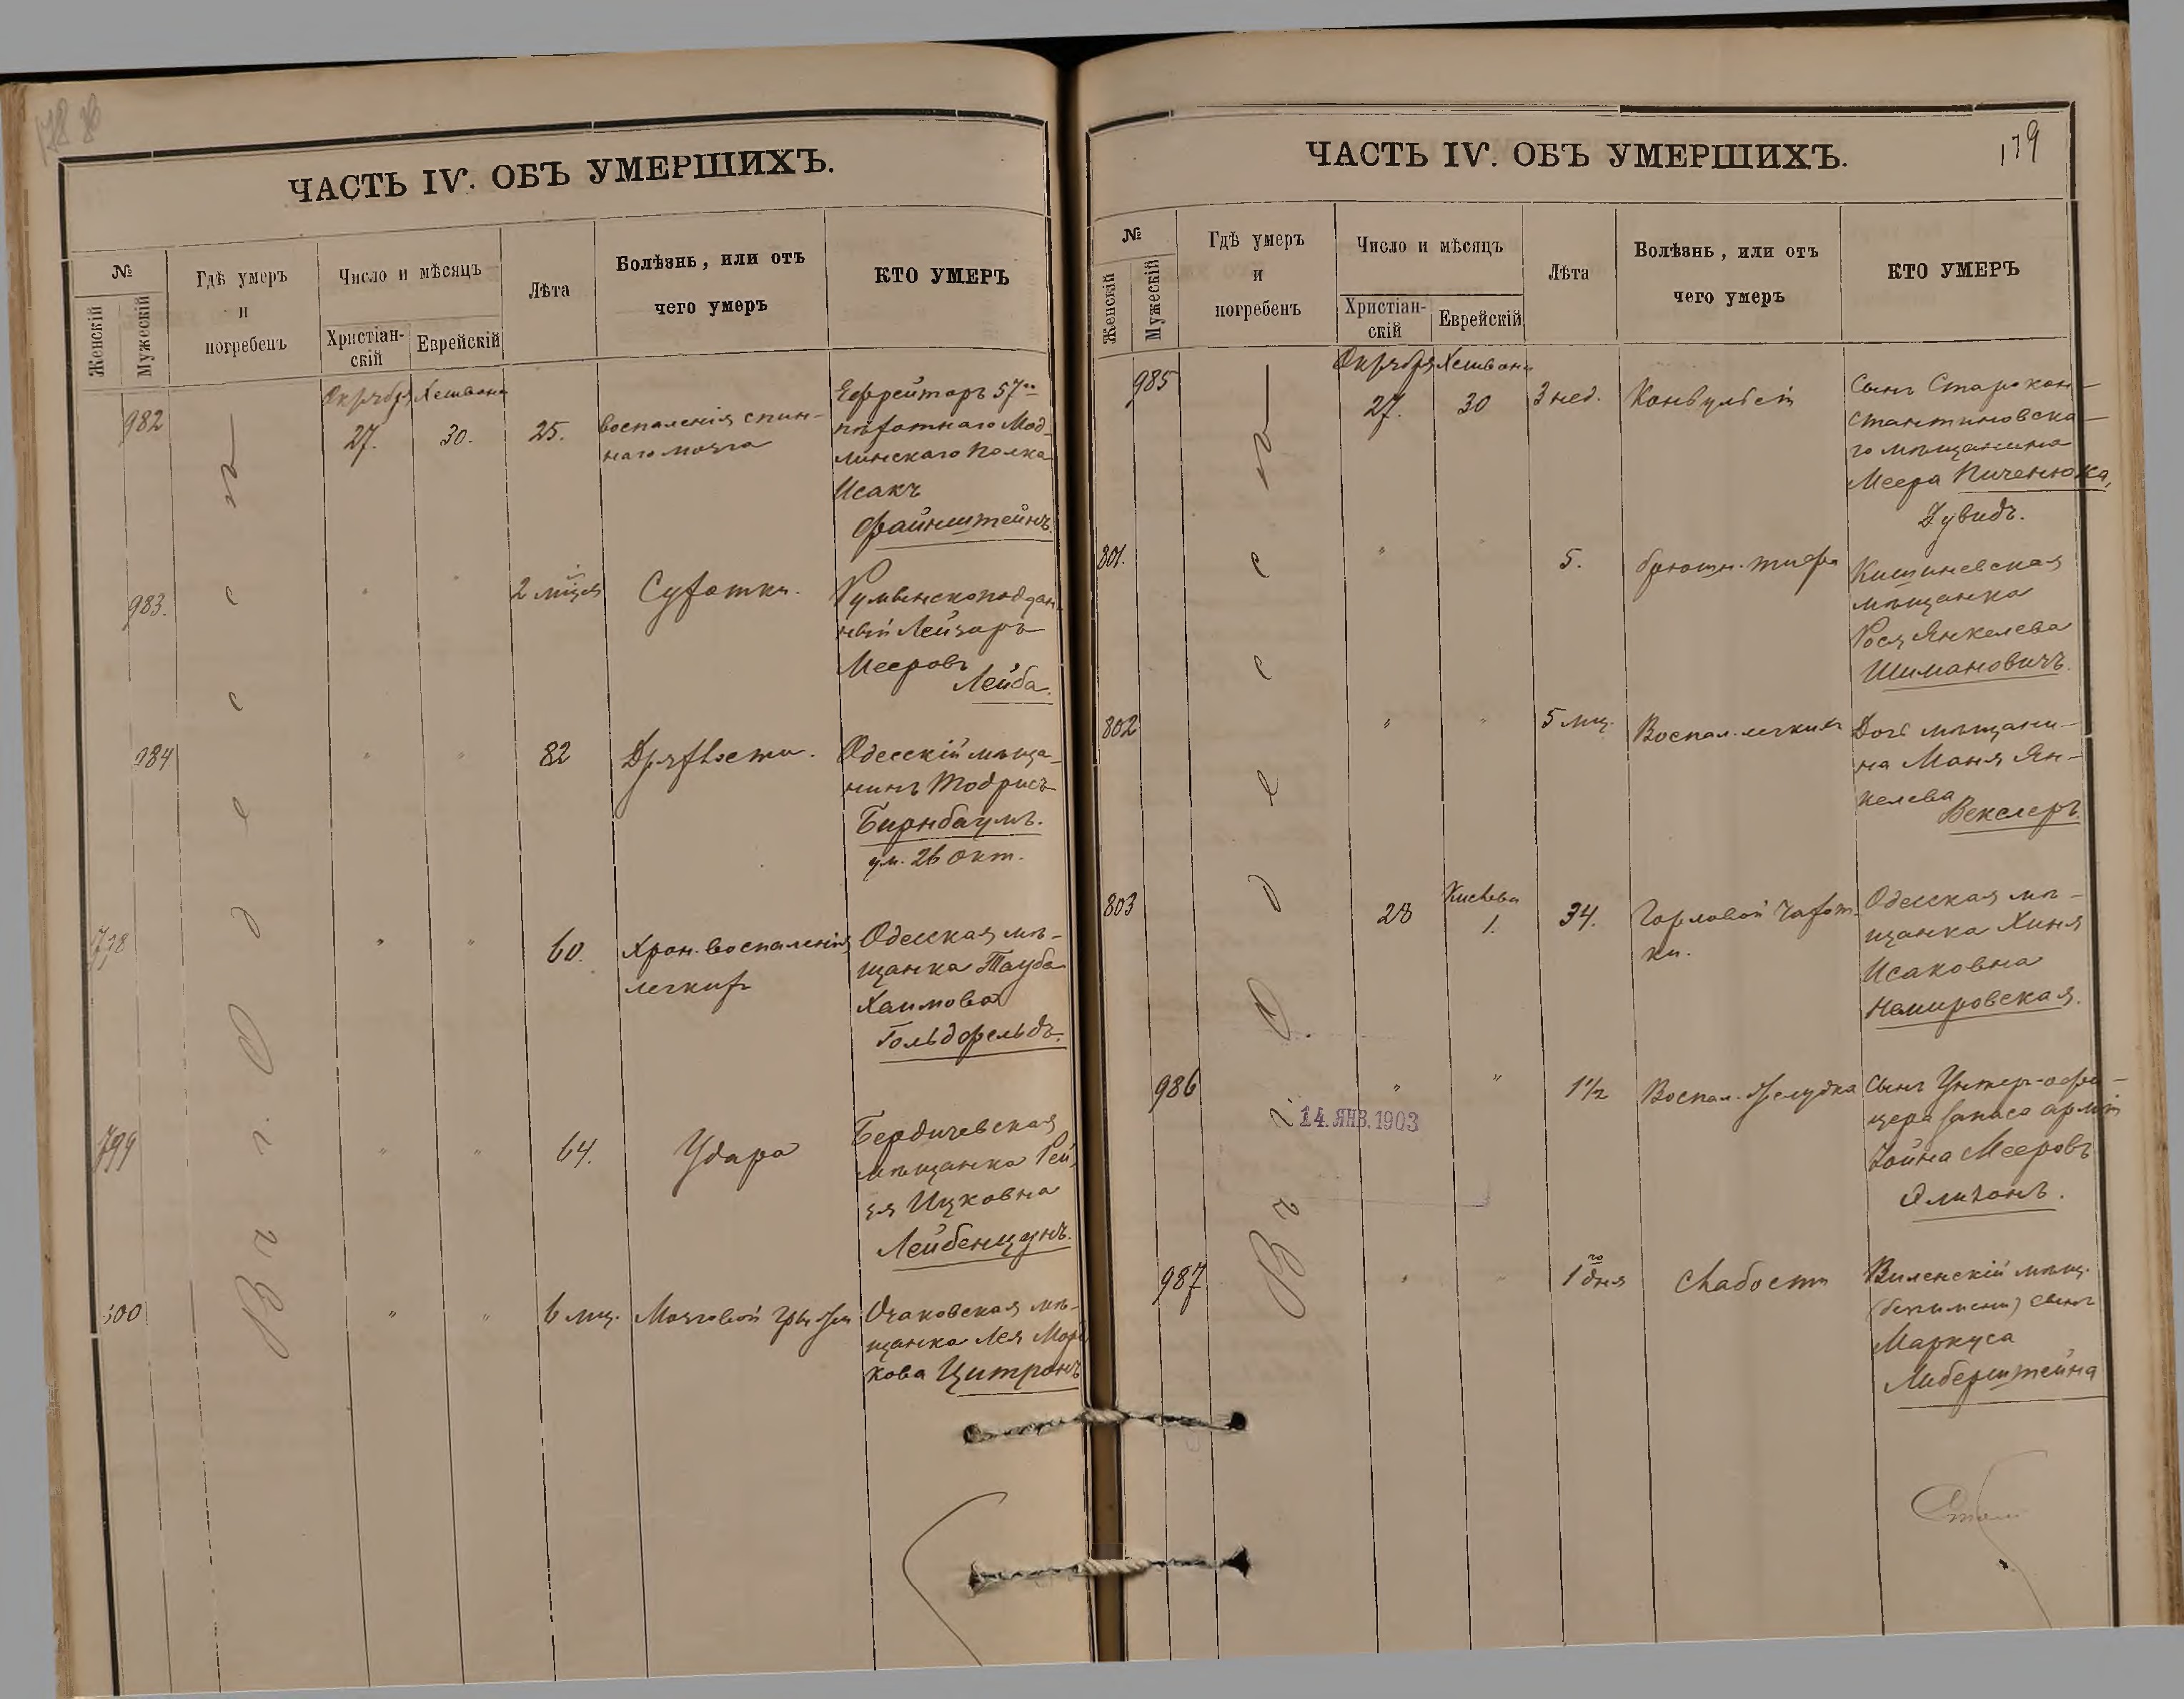 ЧАСТЬ IV. ОБЪ УМЕРШИХЪ.
№
Женскій
Мужескій
Гдѣ умеръ
и
погребенъ
Число и мѣсяцъ
Христіан-
скій
Еврейскій
Лѣта
Болѣзнь, или отъ
чего умеръ
КТО УМЕРЪ
Въ г. Одессѣ
Октября Хешвана
982
27.
30.
25.
воспаленія спин-
наго мозга
Ефрейторъ 57го
пѣхотнаго Мод-
линскаго полка
Исакъ
Файнштейнъ.
983.
"
"
2 мѣсяц
Сухотки.
Румынскоподдан-
ный Лейзоръ
Мееровъ
Лейба.
984
"
"
82
Дряхлости.
Одесскій мѣща-
нинъ Тодрисъ
Бирнбаумъ.
ум. 26 Окт.
798
"
"
60.
Хрон. воспаленія
легкихъ
Одесская мѣ-
щанка Тауба
Хаимова
Гольдфельдъ.
799
"
"
64.
Удара
Бердичевская
мѣщанка Рей-
зя Ицковна
Лейбенцунъ.
800
"
"
6 мц.
Мозговой грыжи
Очаковская мѣ-
щанка Лея Мор-
кова Цитронъ
ЧАСТЬ IV. ОБЪ УМЕРШИХЪ.
179
№
Женскій
Мужескій
Гдѣ умеръ
и
погребенъ
Число и мѣсяцъ
Христіан-
скій
Еврейскій
Лѣта
Болѣзнь, или отъ
чего умеръ
КТО УМЕРЪ
Въ г. Одессѣ
Октября Хешвана
985
27.
30
3 нед.
Конвулсій
Сынъ Старокон-
стантиновска-
го мѣщанина
Меера Пиченюка,
Дувидъ.
801.
"
"
5.
брюшн. тифа
Кишиневская
мѣщанка
Рося Янкелева
Шимановичъ.
802
"
"
5 мц.
Воспал. легкихъ
Дочь мѣщани-
на Маня Ян-
келева
Векслеръ.
803
28
Кислева
1.
34.
Горловой чахот-
ки.
Одесская мѣ-
щанка Хиня
Исаковна
Немировская.
986
"
"
1 1/2
Воспал. желудка
Сынъ Унтеръ-офи-
цера запаса арміи
Мееровъ
14. ЯНВ. 1903
987
"
"
1го дня
Слабости
Виленскій мѣщ.
(безъ имени) сынъ
Маркуса
Либерштейна